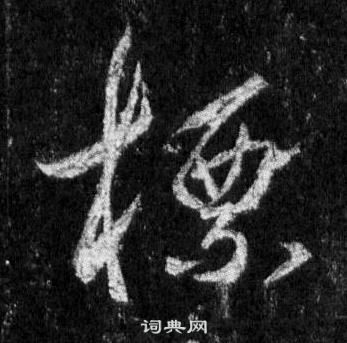 標
词典网